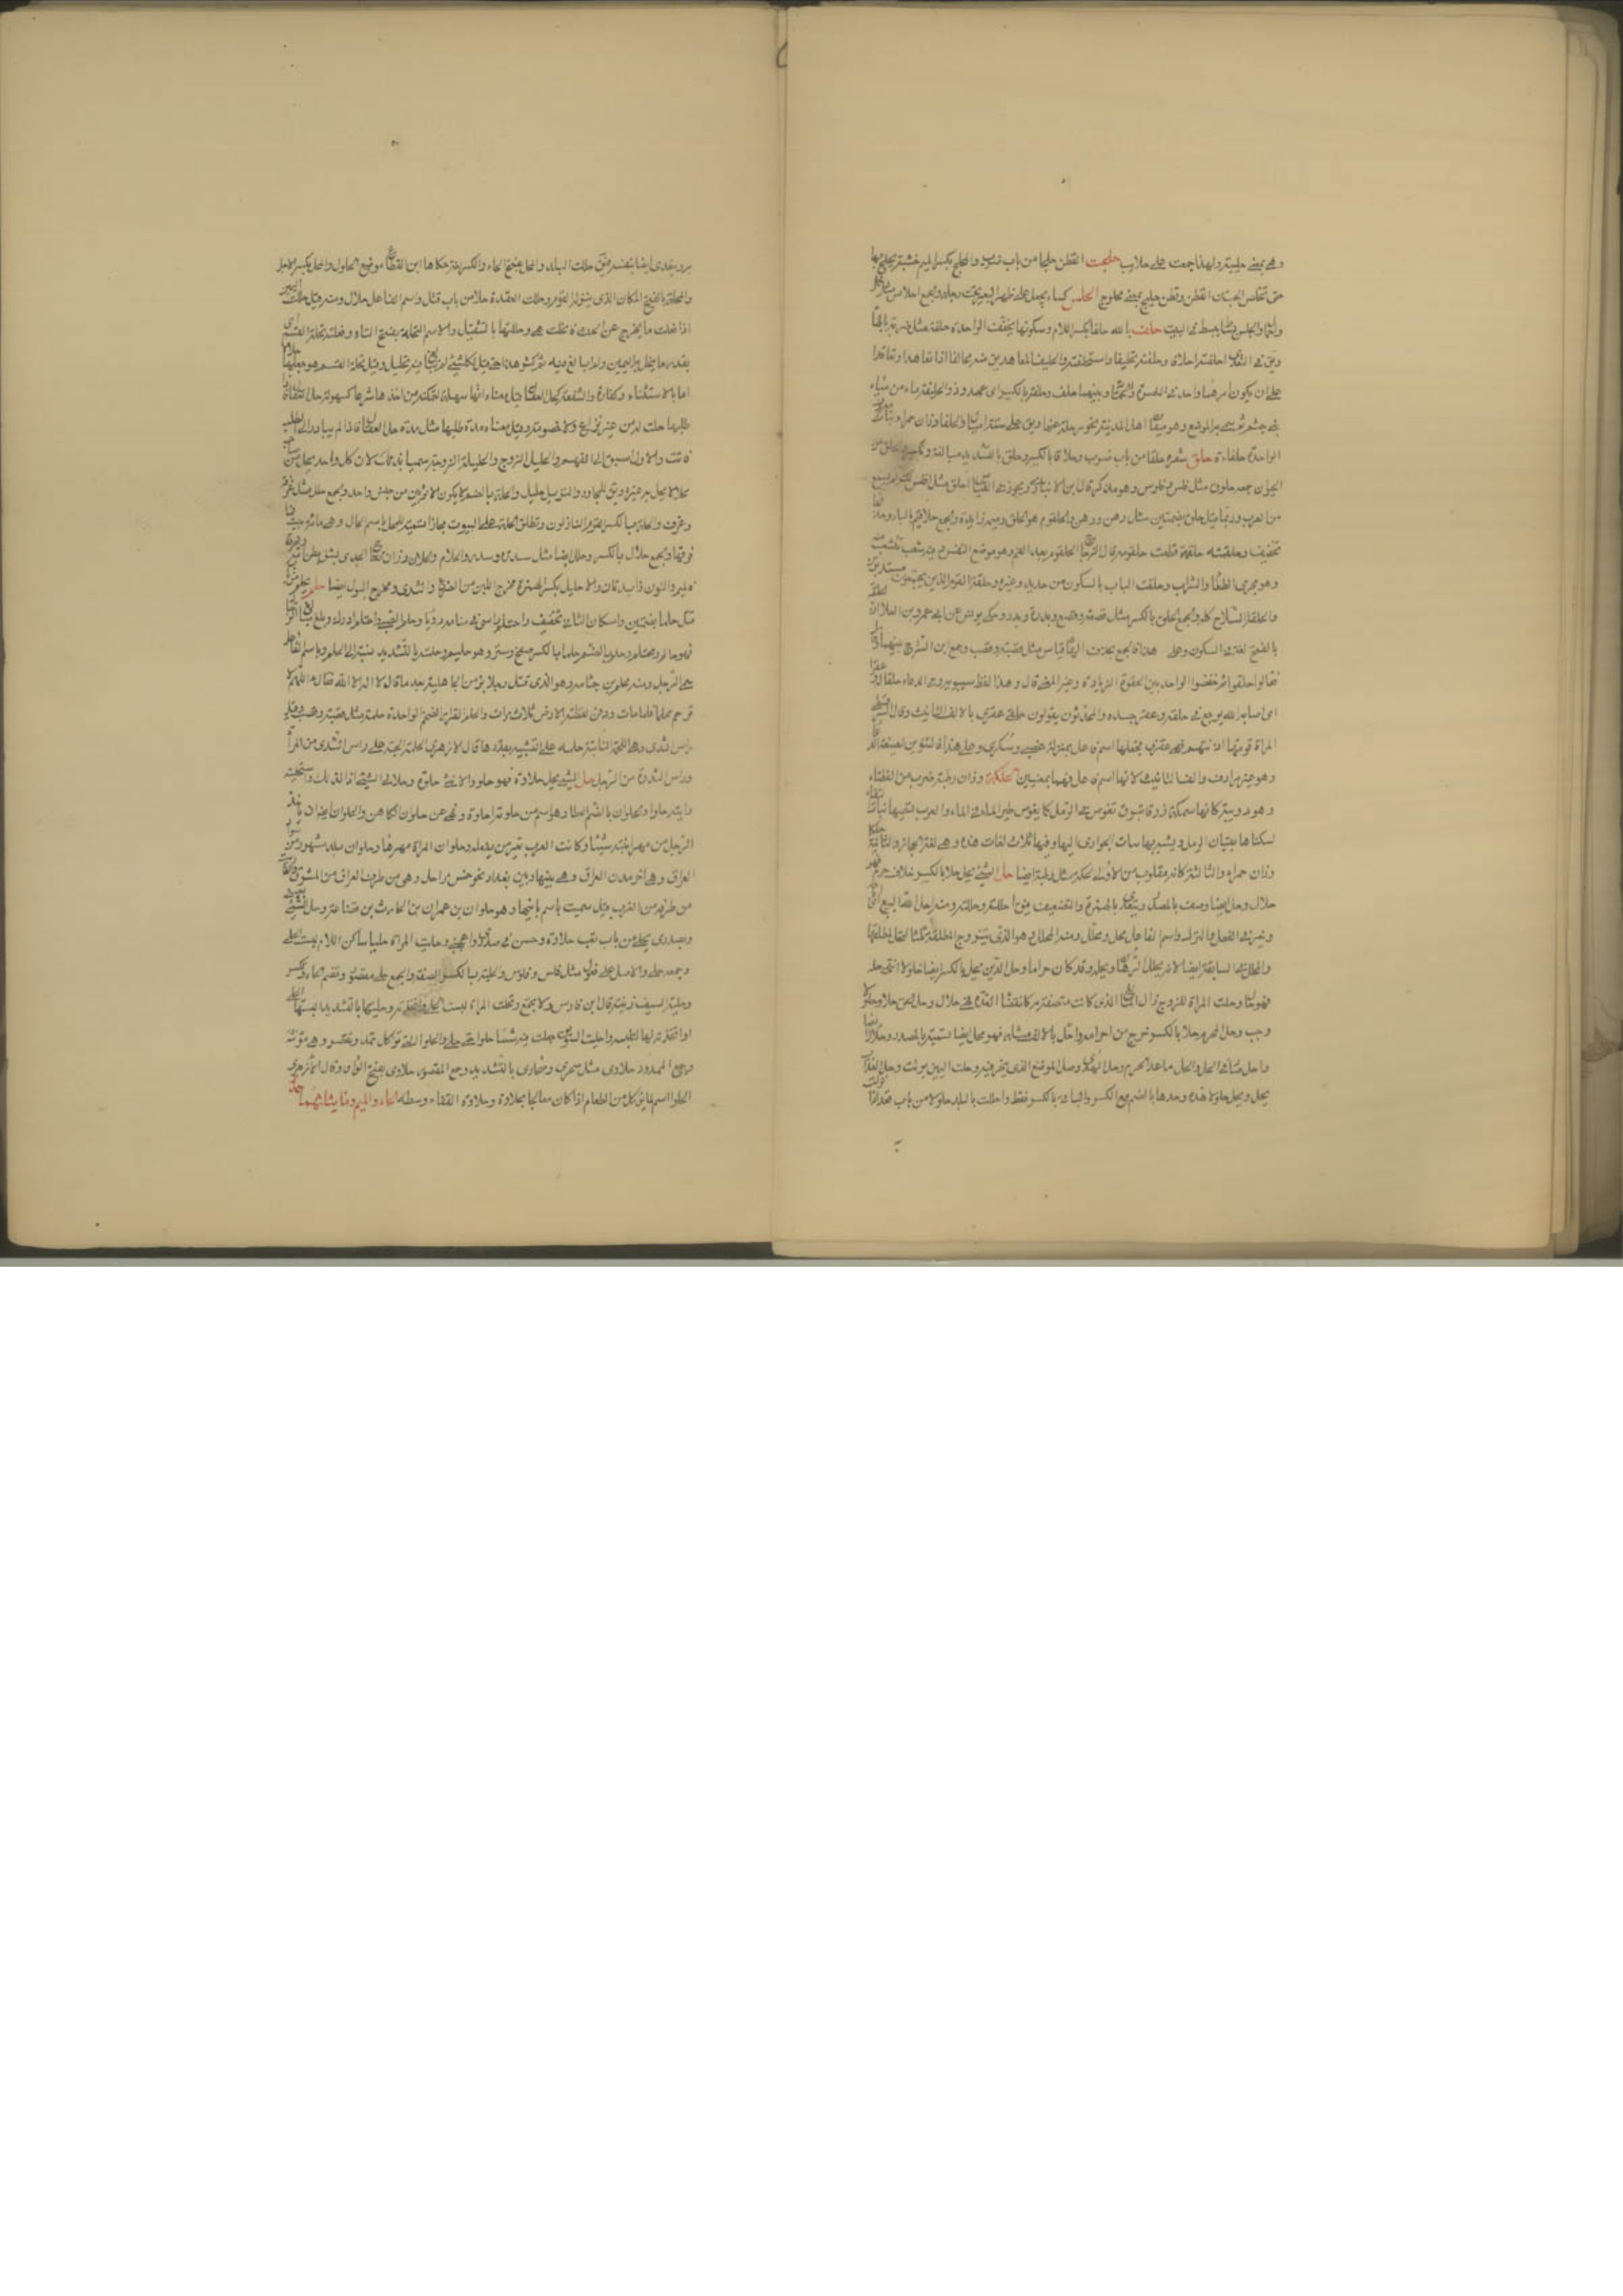 وهي بمعنى حليبة ولهذا جمعت على حلايب حلجت القطن حلجا من باب ضرب والمحلج بكسر الميم خشبة يحلج بها
حتى تخلص الحب من القطن وقطن حليج بمعنى محلوج الحلس كساء يجعل على ظهر البعير تحت رحله والجمع احلاس
بساط يبسط في البيت حلف بالله حلفا بكسر اللام وسكونها تخفيف الواحدة حلفة مثل
احلفته احلافا وحلفته تحليفا واستحلفته والحليف المعاهد يق منه تحالفا اذا تعاهدا وتعاقدا
على ان يكون امرهما واحدا في النصرة وبينهما حلف وحلفة بالكسر اي عهد وذو الحليفة ماء من مياه
بني جشم ثم سمي به الموضع وهو ميقات اهل المدينة نحو مرحلة عنها ويق على ستة اميال والحلفا وزان حمراء نبات
الواحدة حلفاءة حلق شعره حلقا من باب ضرب وحلاقا بالكسر وحلق بالتشديد مبالغة وتكثير والحلق من
الحيوان جمعه حلوق مثل فلس وفلوس وهو مذكر قال ابن الانباري ويجوز في القياس احلق مثل افلس لكنه لم يسمع
من العرب وربما قيل حلق بضمتين مثل رهن ورهن والحلقوم هو الحلق وميمه زايدة والجمع حلاقيم بالياء وحذفها
تخفيف وحلقمته حلقمة قطعت حلقومه قال الزجاج الحلقوم بعد الفم وهو موضع النفس وفيه شعب تتشعب منه
وهو مجرى الطعام والشراب وحلقة الباب بالسكون من حديد وغيره وحلقة القوم الذين يجتمعون مستديرين
والحلقة السلاح كله والجمع حلق بالكسر مثل قصعة وقصع وبدرة وبدر وحكى يونس عن ابي عمرو بن العلاء
بالفتح لغة في السكون وعلى هذا فالجمع بحذف الهاء قياس مثل قصبة وقصب وجمع ابن السراج بينهما
فقالوا حلق ثم خففوا الواحد حين الحقوه الزيادة وغير المعنى قال وهذا لفظ سيبويه وفي الدعاء حلقا له وعقرا
اي اصابه الله بوجع في حلقه وعقر جسده والمحدثون يقولون حلقى عقرى بالالف التانيث وقال السرقسطي
المراة قومها اذ شأمتهم فهي عقرى فجعلها اسم فاعل بمنزلة غضبى وسكرى وعلى هذا فالتنوين لصيغة الدعاء
وهو غير مرادف والف التانيث لانها اسم فاعل فهما بمعنيين الحلكة وزان رطبة ضرب من العظاء
وهو دويبة كانها سمكة زرقا تبرق تغوص في الرمل كما يغوص طير الماء في الماء والعرب تسميها بنات النقا
لسكناها بنقيان الرمل ويشبه بها بنات الجوارى للينها وفيها ثلاث لغات هذه وهي لغة الحجاز والثانية حلكا
وزان حمراء والثالثة كانه مقلوب من الاولى لحكة مثل رطبة ايضا حل الشيء يحل حلا بالكسر خلاف حرم فهو
حلال وحل ايضا وصف بالمصدر ويتعدى بالهمزة والتضعيف فيق احللته وحللته ومنه احل الله البيع اي اباحه
وخير في الفعل والترك واسم الفاعل محل ومحلل ومنه المحلل وهو الذي يتزوج المطلقة ثلثا لتحل لمطلقها
والمحلل في المسابقة ايضا لانه يحلل الرهان ويحله وقد كان حراما وحل الدين يحل بالكسر ايضا حلولا انتهى اجله
فهو حال وحلت المراة للزوج زال المانع الذي كانت متصفة به كانقضاء العدة فهي حلال وحل الحق حلا وحلولا
وجب وحل المحرم حلا بالكسر خرج من احرامه واحل بالالف مثله فهو محل وحل ايضا تسمية بالمصدر وحلال ايضا
واحل صار في الحل والحل ما عدا الحرم وحل الهدى وصل الموضع الذي ينحر فيه وحلت اليمين برت وحل العذاب
يحل ويحل حلولا هذه وحدها بالضم مع الكسر والباقي بالكسر فقط وحللت بالبلد حلولا من باب قعد اذا نزلت
به ويتعدى ايضا بنفسه فيق حللت البلد والمحل بفتح الحاء والكسر لغة حكاها ابن القطاع موضع الحلول والمحل بكسر الاجل
والمحلة بالفتح المكان الذي ينزله القوم وحللت العقدة حلا من باب قتل واسم الفاعل حلال ومنه قيل حللت اليمين
اذا فعلت ما يخرج عن الحنث فانحلت هي وحللتها بالتثقيل والاسم التحلة بفتح التاء وفعلته تحلة القسم اي
بقدر ما تحل به اليمين ولم ابالغ فيه ثم كثر هذا حتى قيل لكل شيء لم يبالغ فيه تحليل وقيل تحلة القسم هو جعلها حلالا
اما بالاستثناء او كفارة والشفعة كحل العقال قيل معناه انها سهلة لتمكنه من اخذها شرعا كسهولة حل العقال فاذا
طلبها حلت له من غير نزاع ولا خصومة وقيل معناه مدة طلبها مثل مدة حل العقال فاذا لم يبادر الى الطلب
فاتت والاول اسبق الى الفهم والحليل الزوج والحليلة الزوجة سميا بذلك لان كل واحد يحل من صاحبه
محلا لا يحل به غيره ويق للمجاور والنزيل حليل والحلة بالضم لا يكون الا ثوبين من جنس واحد والجمع حلل مثل غرفة
وغرف والحلة بالكسر القوم النازلون وتطلق الحلة على البيوت مجازا تسمية للمحل باسم الحال وهي مائة بيت فما
فوقها والجمع حلال بالكسر وحلل ايضا مثل سدرة وسدر والحلام والحلان وزان تفاح الجدي يشق بطن امه ويخرج
فالميم والنون زايدتان والاحليل بكسر الهمزة مخرج اللبن من الضرع والثدي ومخرج البول ايضا حلم يحلم من باب
قتل حلما بضمتين واسكان الثاني تخفيف واحتلم راى في منامه رويا وحلم الصبي واحتلم ادرك وبلغ مبالغ الرجال
فهو حالم ومحتلم وحلم بالضم حلما بالكسر صفح وستر وهو حليم وحلمته بالتشديد نسبته الى الحلم وباسم الفاعل
سمي الرجل ومنه محلم بن جثامة وهو الذي قتل رجلا بذحل من الجاهلية بعد ما قال لا اله الا الله فقال اللهم لا
ترحم محلما فلما مات ودفن لفظته الارض ثلاث مرات والحلم القراد الضخم الواحدة حلمة مثل قصبة وقصب وقيل
راس الثدي وهي اللحمة الناتية حلمة على التشبيه بقدرها قال الازهري الحلمة الحبة على راس الثدي من المراة
وراس الثندوة من الرجل حلا الشيء يحلو حلاوة فهو حلو والانثى حلوة وحلا لي الشيء اذا لذ لك واستحليته
رايته حلوا والحلوان بالضم العطا وهو اسم من حلوته احلوه ونهي عن حلوان الكاهن والحلوان ايضا ان ياخذ
الرجل من مهر ابنته شيئا وكانت العرب تعير من يفعله وحلوان المراة مهرها وحلوان بلد مشهور من سواد
العراق وهي اخر مدن العراق وهي بينها وبين بغداد نحو خمس مراحل وهي من طرف العراق من المشرق
من طرفه من الغرب قيل سميت باسم بانيها وهو حلوان بن عمران بن الحارث بن قضاعة وحلي الشيء بعيني
وبصدري يحلى من باب تعب حلاوة وحسن في صدري واعجبني وحليت المراة حليا ساكن اللام لبست الحلي
وجمعه حلي والاصل على فعول مثل فلس وفلوس والحلية بالكسر الصفة والجمع حلى مقصور وتضم الحاء وتكسر
وحلية السيف زينته قال ابن فارس ولا تجمع وتحلت المراة لبست الحلي واتخذته وحليتها بالتشديد البستها الحلي
او اتخذته لها لتلبسه وحليت السويق جعلت فيه شيئا حلوا حتى حلي والحلوا التي تؤكل تمد وتقصر وهي مونثة
وجمع الممدود حلاوي مثل صحرى وصحارى بالتشديد وجمع المقصور حلاوى بفتح الواو وقال الازهري
الحلوا اسم لما يؤكل من الطعام اذا كان معالجا بحلاوة وحلاوة القفاء وسطه الحاء والميم وما يثلثهما